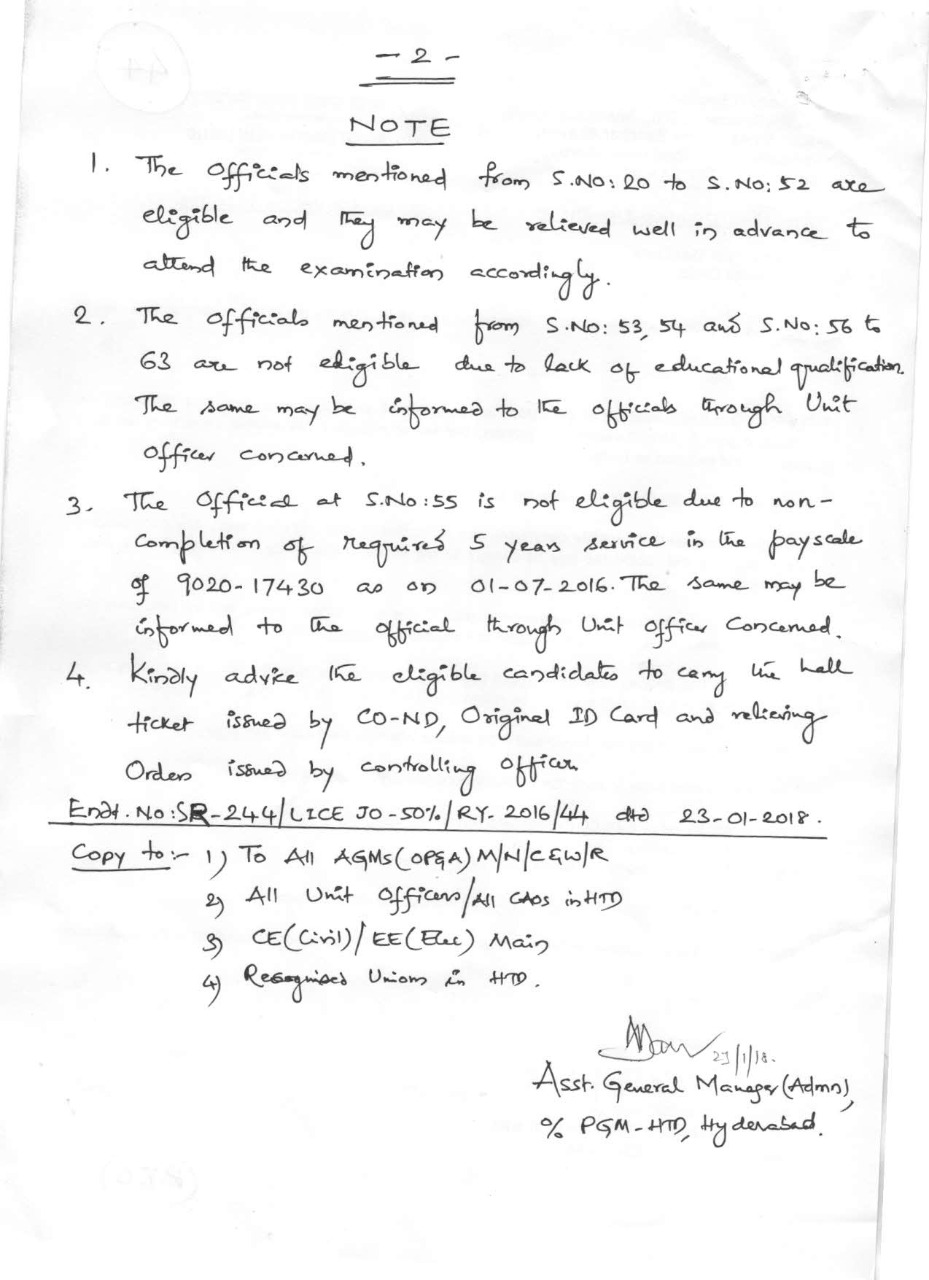 - 2 -
NOTE
1. The Officials mentioned from S.NO: 20 to S.NO: 52 are
eligible and they may be relieved well in advance to
attend the examination accordingly.
2. The Officials mentioned from S.NO: 53, 54 and S.No: 56 to
63 are not eligible due to lack of educational qualification.
The same may be informed to the officials through Unit
Officer concerned.
3. The Official at S.No:55 is not eligible due to non-
Completion of required 5 years service in the payscale
of 9020-17430 as on 01-07-2016. The same may be
informed to the official through Unit Officer Concerned.
4. Kindly advice the eligible candidates to carry the hall
ticket issued by CO-ND, Original ID Card and relieving
Orders issued by controlling officer.
Endt. No:SR-244/LICE JO-50%/RY-2016/44 dtd 23-01-2018.
Copy to:- 1) To All AGMs(OP&A) M/N/C&W/R
2) All Unit Officers/All CAOs in HTD
3) CE(Civil)/EE(Elec) Main
4) Recognised Unions in HTD.
23/1/18.
Asst. General Manager(Admn),
O/o PGM-HTD, Hyderabad.